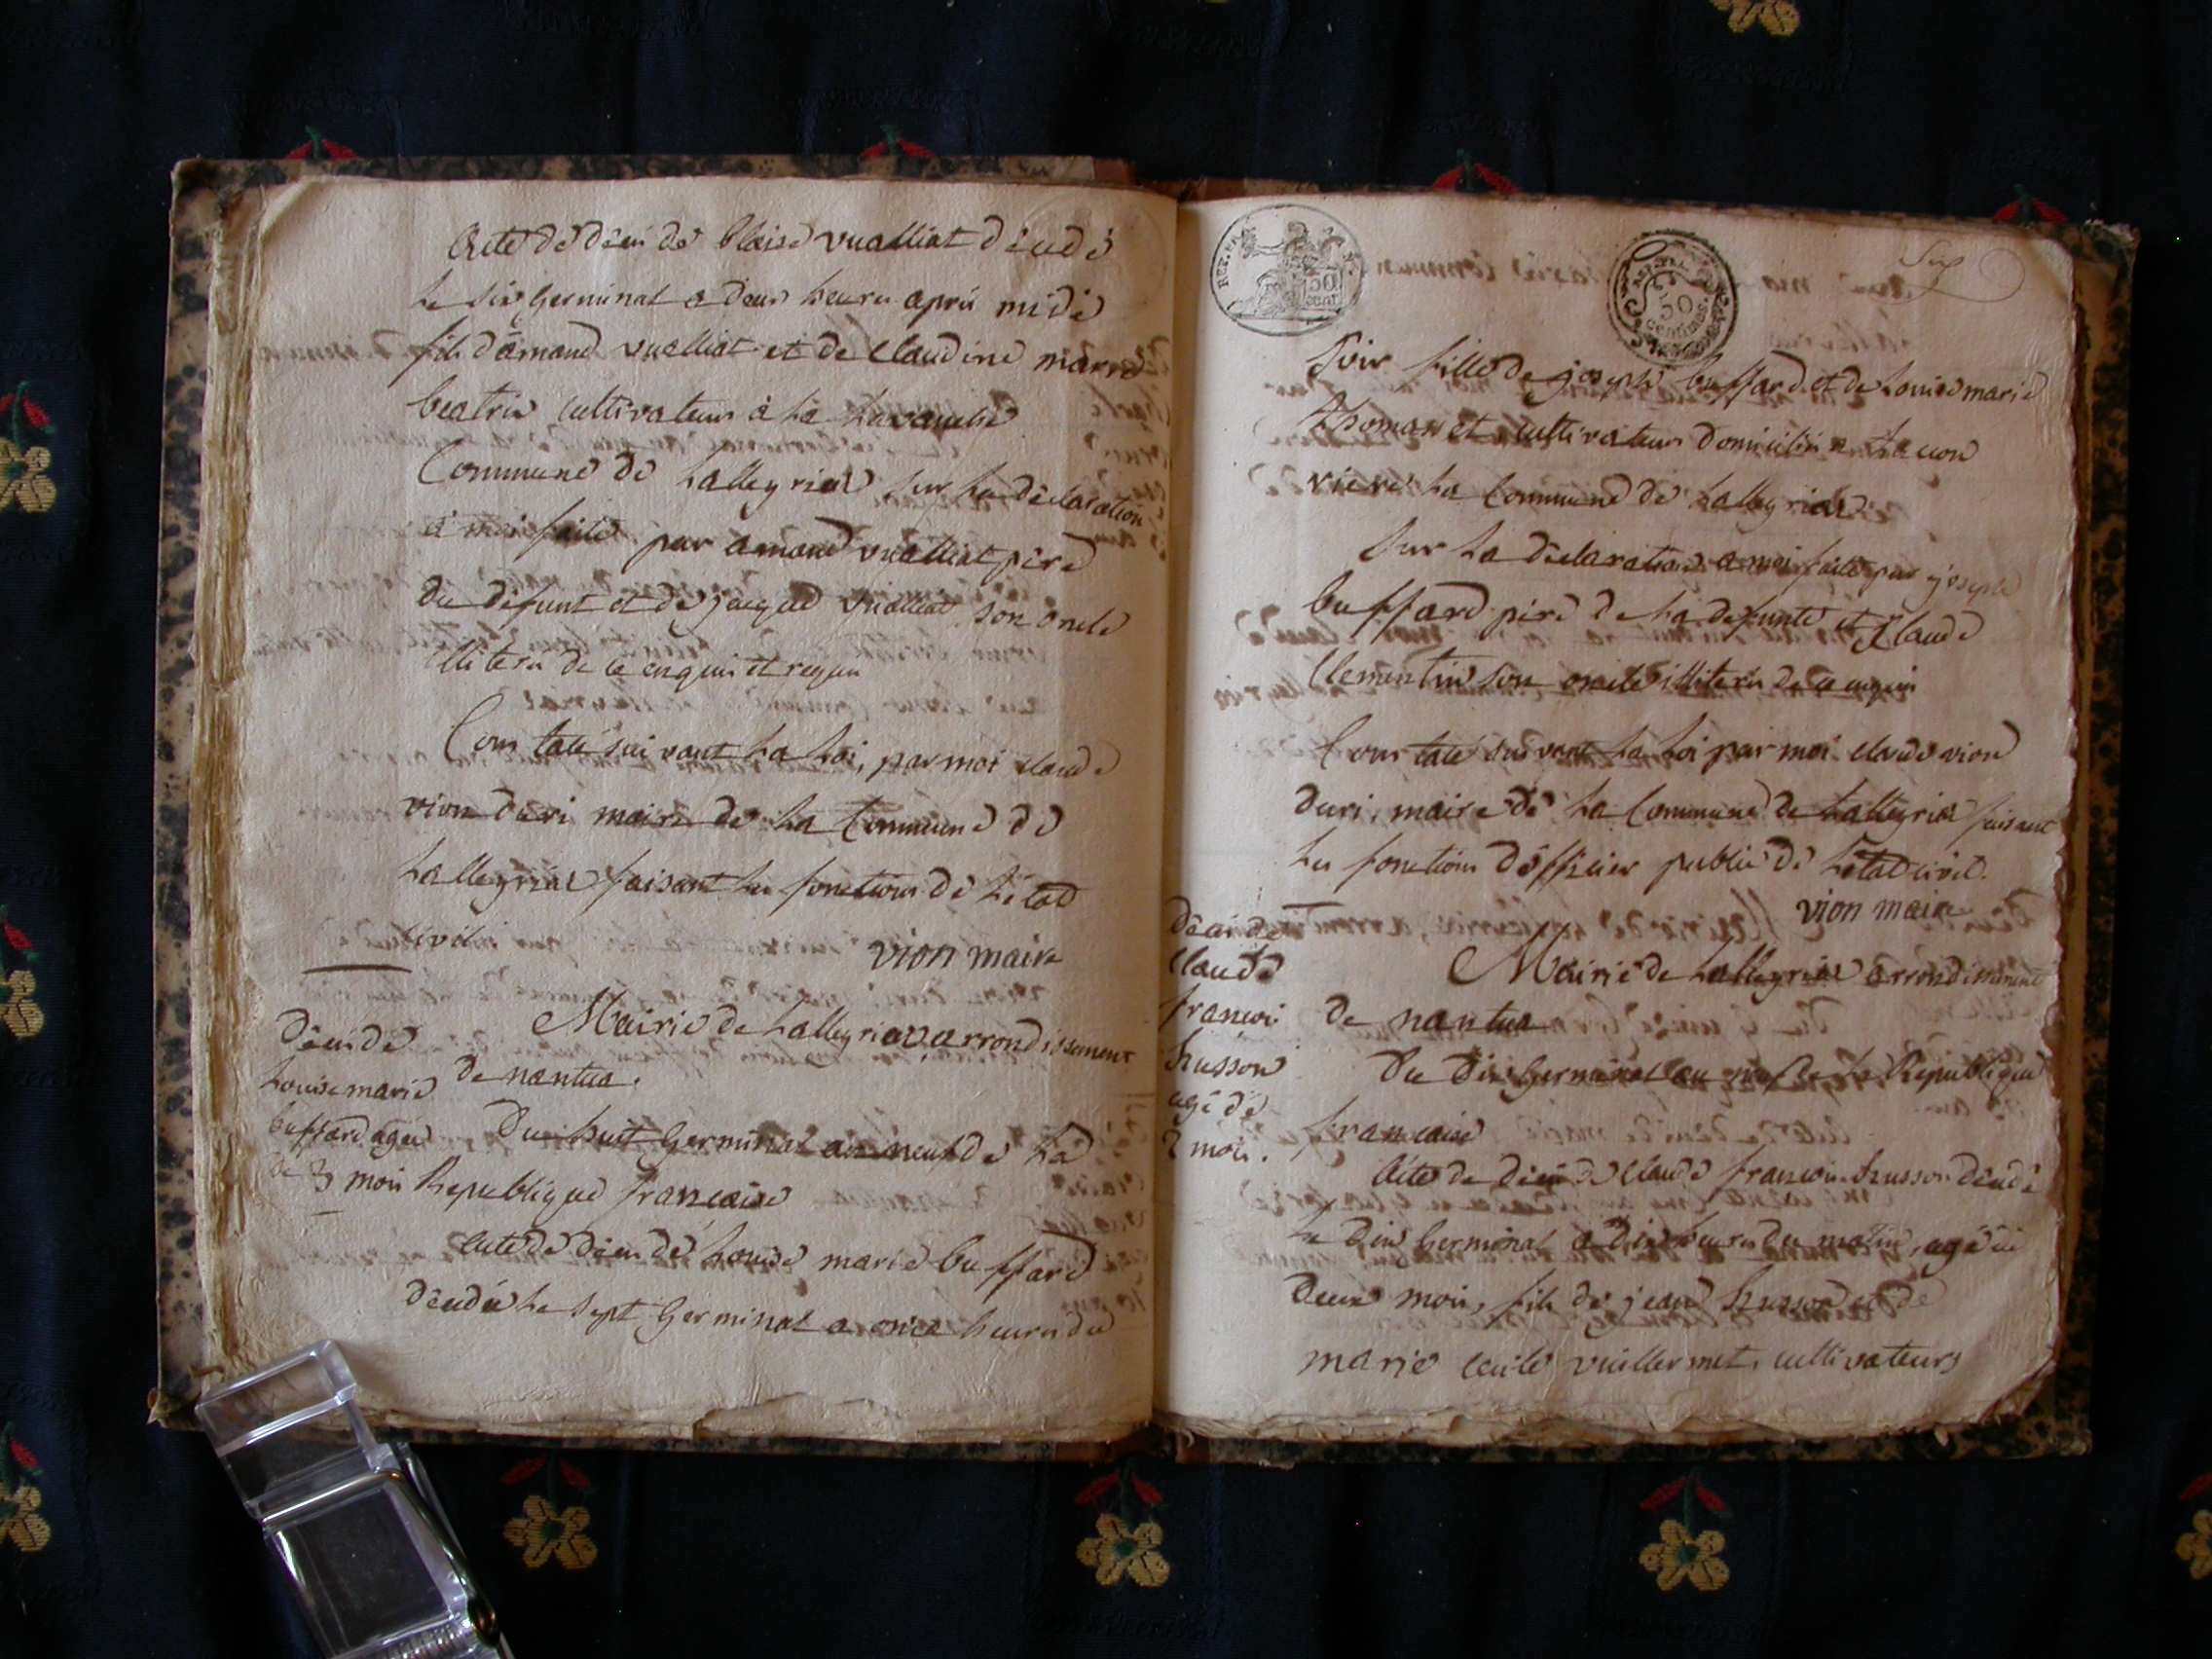 Acte de décès de blaise vualliat décédé
le six Germinal a deux heures après midi
fils d'amand vualliat et de claudine marie
beatrix cultivateurs à la
Commune de Lalleyriat sur la déclaration
à moi faite par amand vualliat père
du défunt et de jacque vualliat son oncle
illiterés de ce enquis et requis
Constaté suivant la Loi, par moi claude
vion duri maire de la Commune de
Lalleyriat faisant les fonctions de L'état
civil
vion maire
Mairie de Lalleyriat arrondissement
de nantua.
décès de
Louise marie
buffard agée
de 3 mois
Du huit Germinal an neuf de La
Republique francaise
Acte de décès de Louise marie buffard
décédée Le sept Germinal a onze heures du
REP. FRA.
50
cent
50
centimes
Six
Soir fille de joseph buffard et de Louise marie
Thomasset cultivateurs domiciliés a
La Commune de Lalleyriat
Sur La déclaration a moi faite par joseph
buffard père de La defunte et Claude
Clemantin son oncle illiterés de ce enquis
Constaté suivant La Loi par moi claude vion
duri, maire de La Commune de Lalleyriat faisant
les fonctions d'officier public de L'état civil.
vion maire
Mairie de Lalleyriat arrondissement
de nantua
décès de
claude
francois
husson
agé de
2 mois.
Du dix Germinal an neuf de La Republique
francaise
Acte de décès de claude francois husson décédé
Le dix Germinal a dix heures du matin, agé de
deux mois, fils de jean husson et de
marie cecile vuillermet, cultivateurs